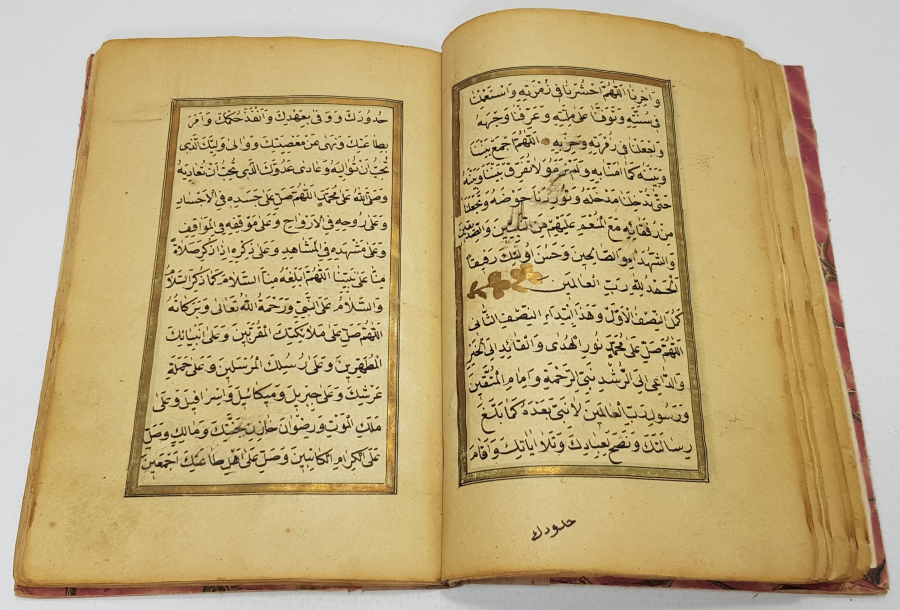 واخرنا اللهم احشرنا في زمرته واستعملنا
في سنته وتوفنا على ملته وعرفنا وجهه
واجعلنا في زمرته وحزبه اللهم اجمع بيننا
وبينه كما امنا به ولم نره ولا تفرق بيننا وبينه
حتى تدخلنا مدخله وتوردنا حوضه وتجعلنا
من رفقائه مع المنعم عليهم من النبيين والصديقين
والشهداء والصالحين وحسن اولئك رفيقا
الحمد لله رب العالمين
كمل النصف الاول وهذا ابتداء النصف الثاني
اللهم صل على محمد نور الهدى والقائد الى الخير
والداعي الى الرشد نبي الرحمة وامام المتقين
ورسول رب العالمين لا نبي بعده كما بلغ
رسالتك ونصح لعبادك وتلا اياتك واقام
حدودك
حدودك ووفى بعهدك وانفذ حكمك وامر
بطاعتك ونهى عن معصيتك ووالى وليك الذي
تحب ان تواليه وعادى عدوك الذي تحب ان تعاديه
وصلى الله على محمد اللهم صل على جسده في الاجساد
وعلى روحه في الارواح وعلى موقفه في المواقف
وعلى مشهده في المشاهد وعلى ذكره اذا ذكر صلاة
منا على نبينا اللهم ابلغه منا السلام كما ذكر السلام
والسلام على النبي ورحمة الله تعالى وبركاته
اللهم صل على ملائكتك المقربين وعلى انبيائك
المطهرين وعلى رسلك المرسلين وعلى حملة
عرشك وعلى جبريل وميكائيل واسرافيل وعلى
ملك الموت ورضوان خازن جنتك ومالك وصل
على الكرام الكاتبين وصل على اهل طاعتك اجمعين